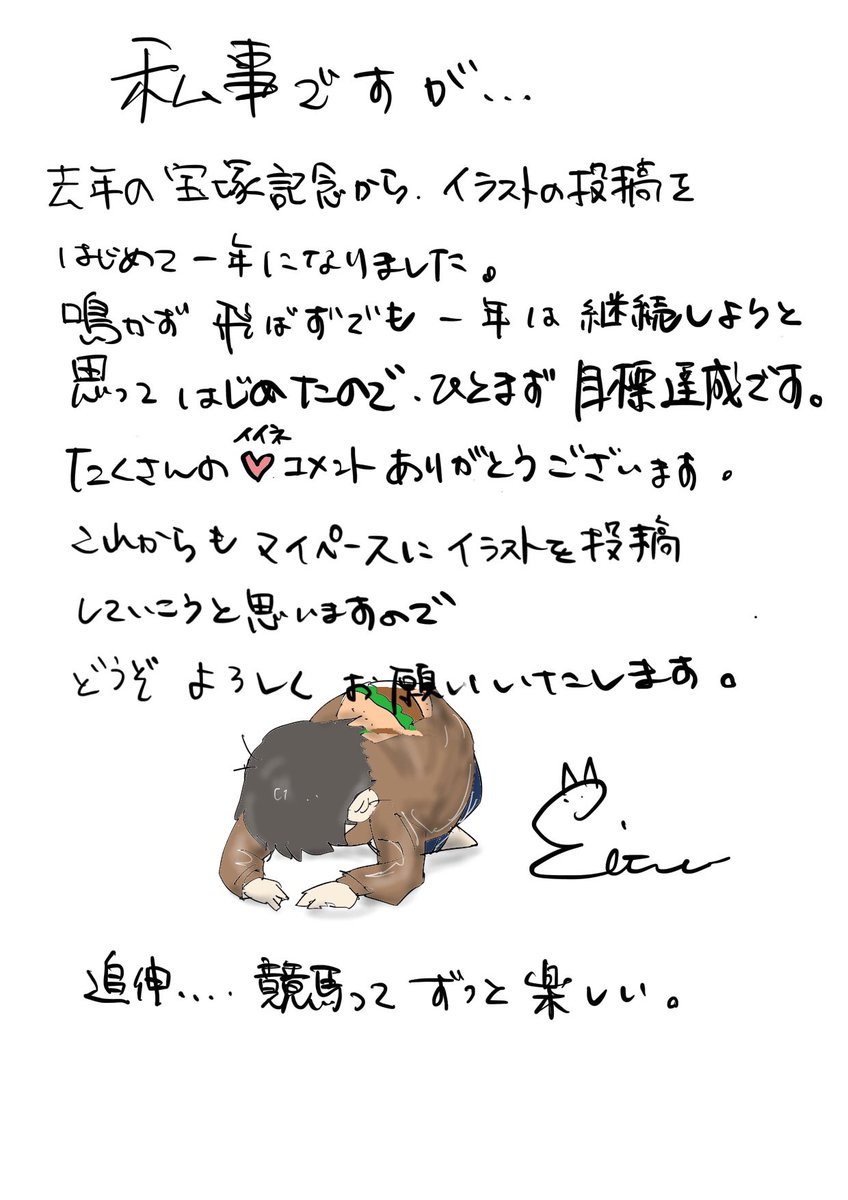 私事ですが...
去年の宝塚記念から、イラストの投稿を
はじめて一年になりました。
鳴かず飛ばずでも一年は継続しようと
思ってはじめたので、ひとまず目標達成です。
イイネ
たくさんの♥コメントありがとうございます。
これからもマイペースにイラストを投稿
していこうと思いますので
どうぞよろしくお願いいたします。
追伸.... 競馬ってずっと楽しい。